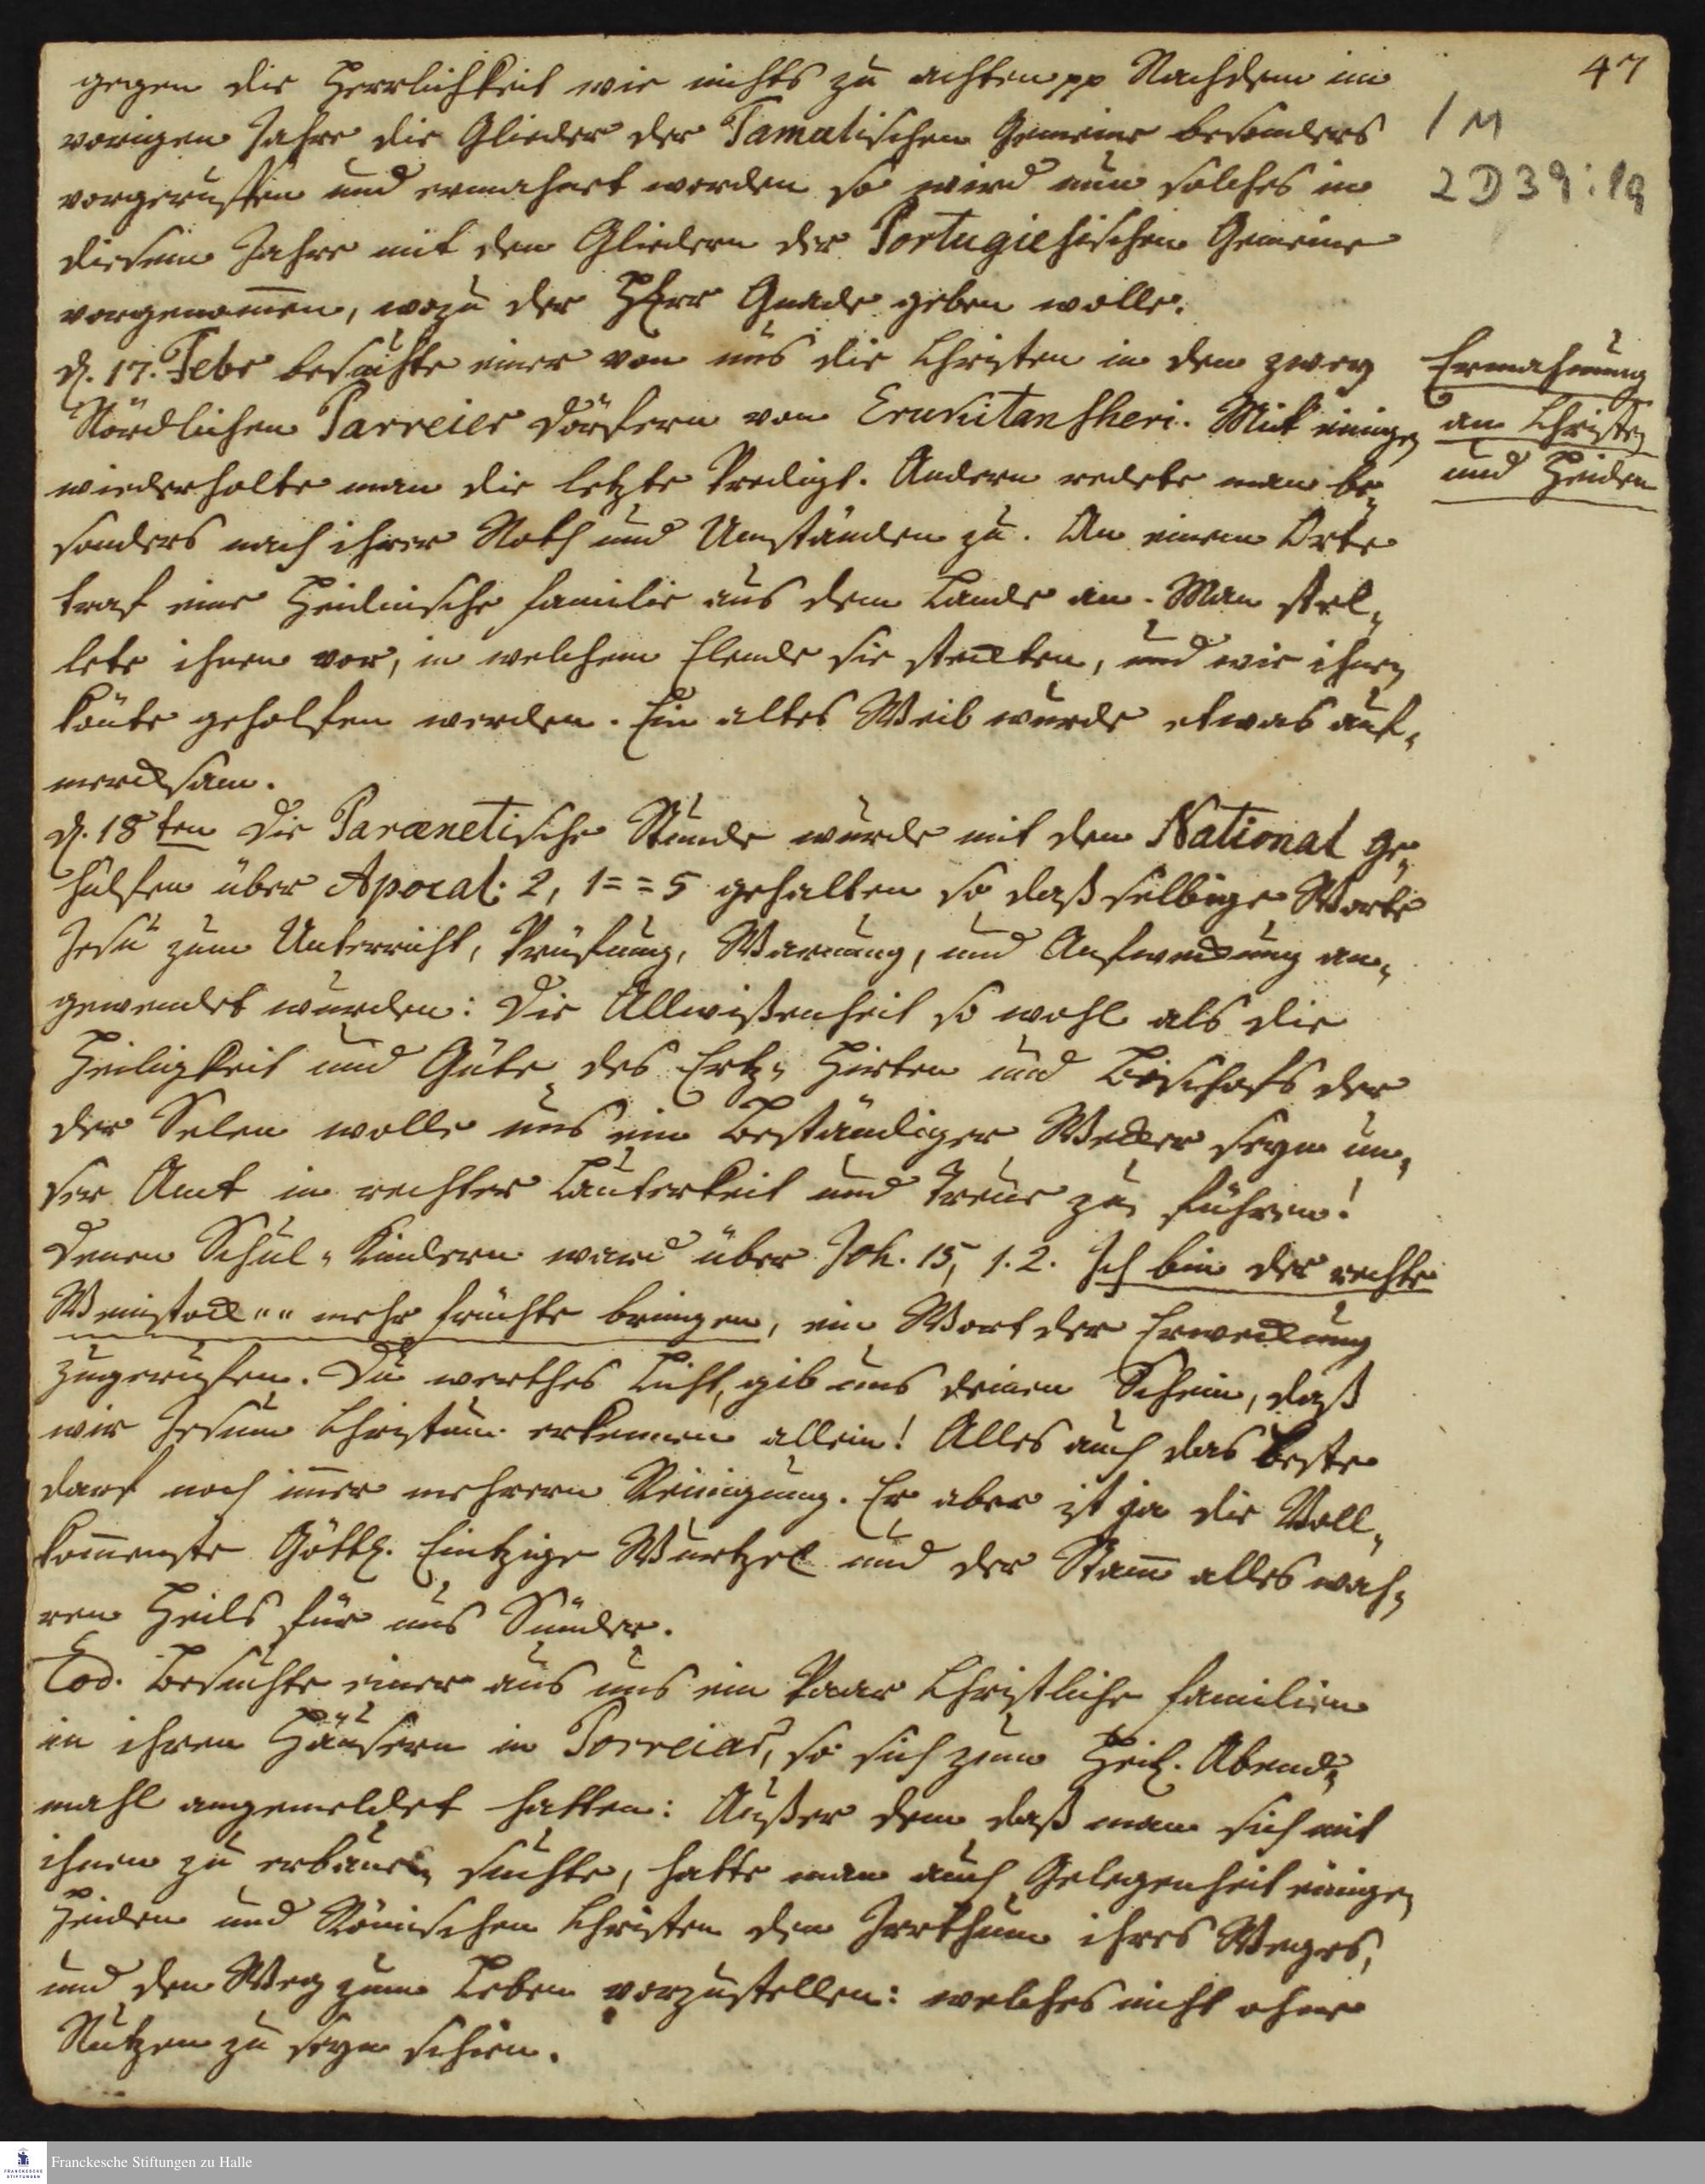 47
1 M
2 D 39 : 19
gegen die Herrlichkeit wie nichts zu achten pp Nachdem im
vorigen Jahre die Glieder der Tamulischen Gemeine besonders
vorgeruffen und ermahnet worden so wird nun solches in
diesem Jahre mit den Gliedern der Portugiesischen Gemeine
vorgenom̄en, wozu der HErr Gnade geben wolle.
d. 17. Febr besuchte einer von uns die Christen in den zwey
Nördlichen Parreier Dörfern von Erukitanscheri. Mit einigen
wiederholte man die letzte Predigt. Andern redete man be„
sonders nach ihrer Noth und Umständen zu. An einem Orte
traf eine Heidnische Familie aus dem Lande an. Man stel„
lete ihnen vor, in welchem Elende sie steckten, und wie ihnen
kön̄te geholfen werden. Ein altes Weib wurde etwas auf„
mercksam.
Ermahnung
an Christen
und Heiden
d. 18ten Die Paraenetische Stunde wurde mit den National Ge„
hülfen über Apocal: 2, 1==5 gehalten so daß selbige Worte
Jesu zum Unterricht, Prüfung, Warnung, und Aufweckung an„
gewendet wurden: Die Allwißenheit so wohl als die
Heiligkeit und Güte des Ertz„ Hirten und Bischofs der
der Selen wolle uns ein beständiger Wecker seyn un„
ser Amt in rechter Lauterkeit und Treue zu führen!
Denen Schul„ Kindern ward über Joh. 15, 1. 2. Ich bin der rechte
Weinstock „„ mehr Früchte bringen, ein Wort der Erweckung
zugerufen. Du werthes Licht, gib uns deinen Schein, daß
wir Jesum Christum erkennen allein! Alles auch das beste
darf noch im̄er mehrern Reinigung. Er aber ist ja die Voll„
kom̄enste Göttl. Eintzige Wurtzel und der Stam̄ alles wah„
ren Heils für uns Sünder.
Eod. besuchte einer aus uns ein Paar Christliche Familien
in ihren Häusern in Porreiar, so sich zum Heil. Abend„
mahl angemeldet hatten: Außer dem daß man sich mit
ihnen zu erbauen suchte, hatte man auch Gelegenheit einigen
Heiden und Römischen Christen den Irrthum ihres Weges,
und den Weg zum Leben vorzustellen: welches nicht ohne
Nutzen zu seyn schien.
FRANCKESCHE STIFTUNGEN
Franckesche Stiftungen zu Halle